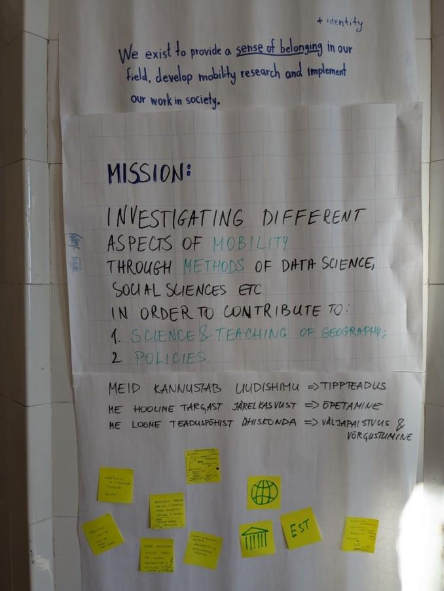 + identity
We exist to provide a sense of belonging in our
field, develop mobility research and implement
our work in society.
MISSION:
INVESTIGATING DIFFERENT
ASPECTS OF MOBILITY
THROUGH METHODS OF DATA SCIENCE,
SOCIAL SCIENCES ETC
IN ORDER TO CONTRIBUTE TO:
1. SCIENCE & TEACHING OF GEOGRAPHY;
2 POLICIES
MEID KANNUSTAB UUDISHIMU => TIPPTEADUS
ME HOOLIME TARGAST JÄRELKASVUST => ÕPETAMINE
ME LOOME TEADUSPÕHIST ÜHISKONDA => VÄLJAPAISTVUS &
VÕRGUSTUMINE
EST